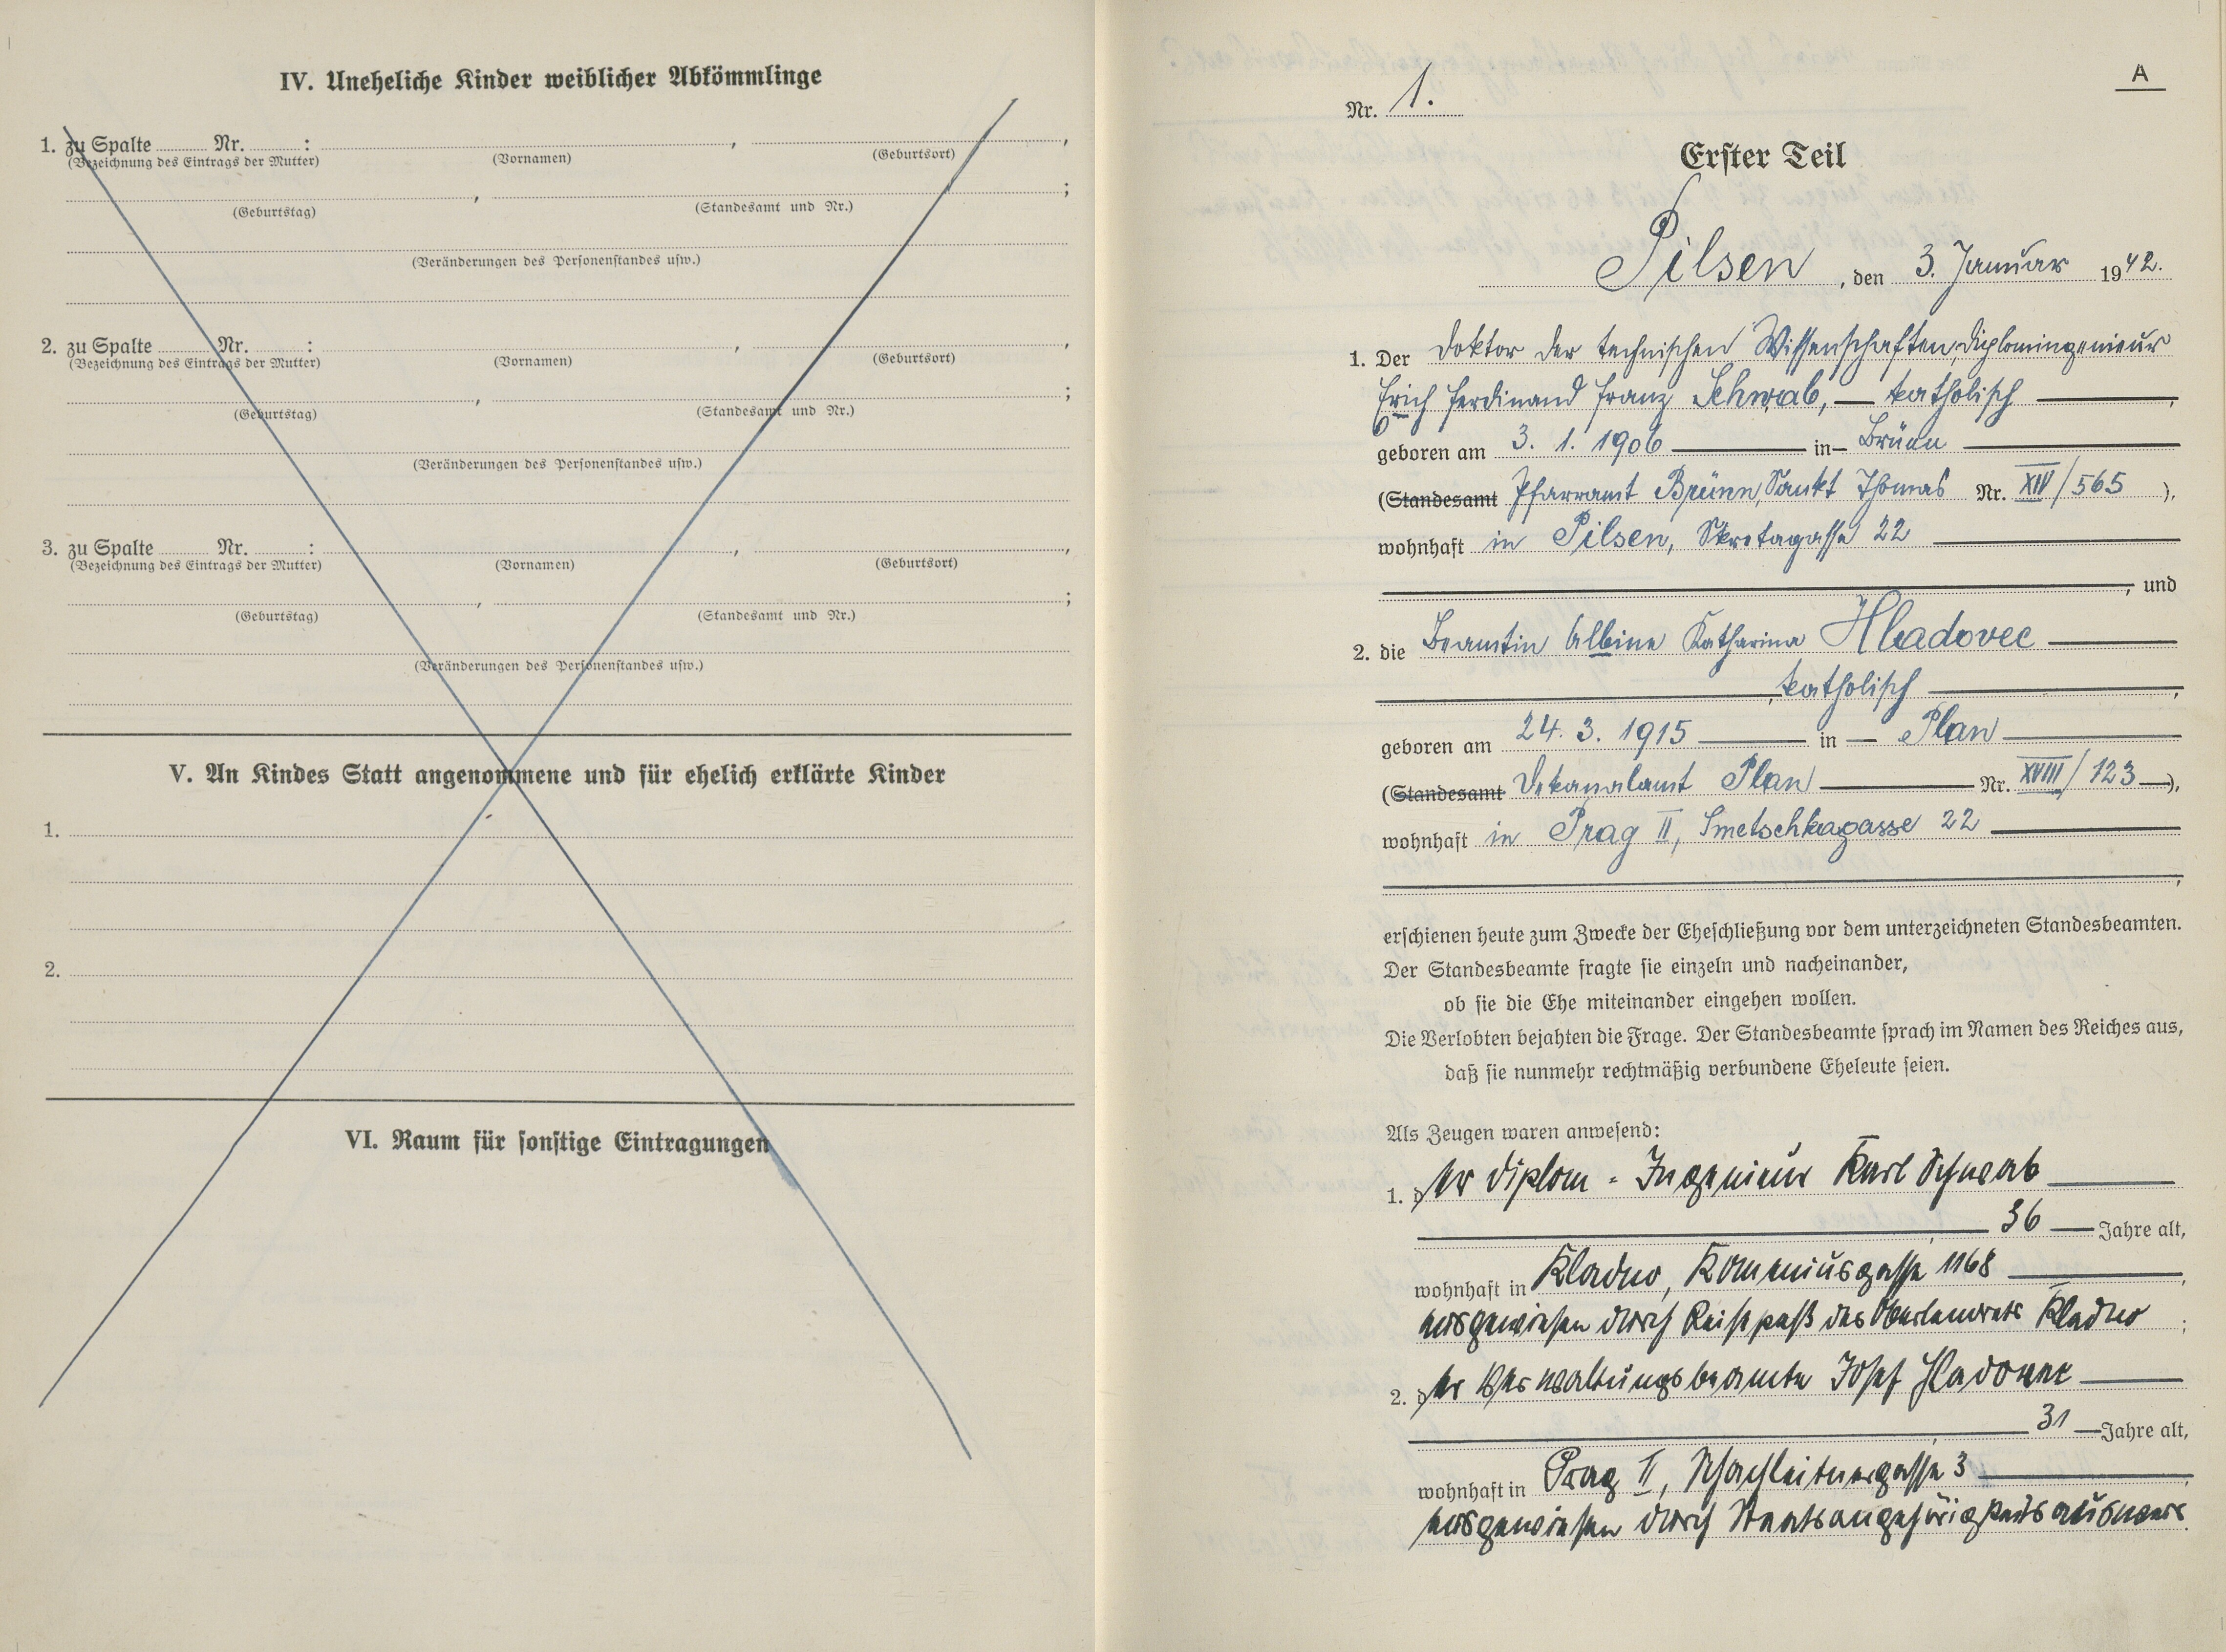 IV. Uneheliche Kinder weiblicher Abkömmlinge
1. zu Spalte Nr. : , ,
(Bezeichnung des Eintrags der Mutter) (Vornamen) (Geburtsort)
, ;
(Geburtstag) (Standesamt und Nr.)
(Veränderungen des Personenstandes usw.)
2. zu Spalte Nr. : , ,
(Bezeichnung des Eintrags der Mutter) (Vornamen) (Geburtsort)
, ;
(Geburtstag) (Standesamt und Nr.)
(Veränderungen des Personenstandes usw.)
3. zu Spalte Nr. : , ,
(Bezeichnung des Eintrags der Mutter) (Vornamen) (Geburtsort)
, ;
(Geburtstag) (Standesamt und Nr.)
(Veränderungen des Personenstandes usw.)
V. An Kindes Statt angenommene und für ehelich erklärte Kinder
1.
2.
VI. Raum für sonstige Eintragungen
A
Nr. 1.
Erster Teil
Pilsen, den 3. Januar 1942.
1. Der Doktor der technischen Wissenschaften, Diplomingenieur
Erich Ferdinand Franz Schwab, — katholisch —,
geboren am 3. 1. 1906 — in — Brünn —
(Standesamt Pfarramt Brünn, Sankt Thomas Nr. XIV/565),
wohnhaft in Pilsen, Skretagasse 22 —
—, und
2. die Beamtin Albine Katharina Hladovec —
—, katholisch —,
geboren am 24. 3. 1915 — in — Plan —
(Standesamt Dekanalamt Plan — Nr. XVIII/123 —),
wohnhaft in Prag II, Smetschkagasse 22 —
—,
erschienen heute zum Zwecke der Eheschließung vor dem unterzeichneten Standesbeamten.
Der Standesbeamte fragte sie einzeln und nacheinander,
ob sie die Ehe miteinander eingehen wollen.
Die Verlobten bejahten die Frage. Der Standesbeamte sprach im Namen des Reiches aus,
daß sie nunmehr rechtmäßig verbundene Eheleute seien.
Als Zeugen waren anwesend:
1. der Diplom-Ingenieur Karl Schwab —
—, 36 — Jahre alt,
wohnhaft in Kladno, Komeniusgasse 1168 —,
ausgewiesen durch Reisepaß des Oberlandrats Kladno ;
2. der Verwaltungsbeamte Josef Hladovec —
—, 31 — Jahre alt,
wohnhaft in Prag II, Schachleitnergasse 3 —,
ausgewiesen durch Staatsangehörigkeitsausweis.